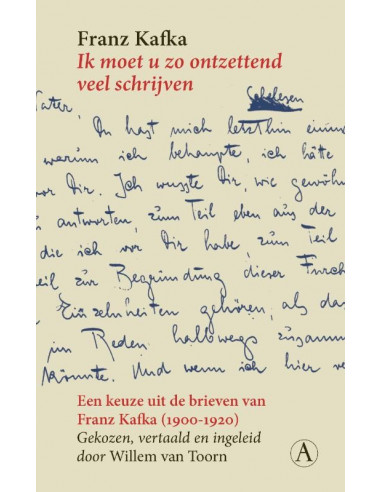 Franz Kafka
Ik moet u zo ontzettend
veel schrijven
Schelesen
Vater,
Du hast mich letzthin einm
warum ich behaupte, ich hätte
vor Dir. Ich wusste Dir, wie gewöhn
antworten, zum Teil eben aus der
die ich vor Dir habe, zum Teil
eil zur Begründung dieser Furch
Einzelnheiten gehören, als da
im Reden halbwegs zusamm
könnte. Und wenn ich hier ve
Een keuze uit de brieven van
Franz Kafka (1900-1920)
Gekozen, vertaald en ingeleid
door Willem van Toorn
A